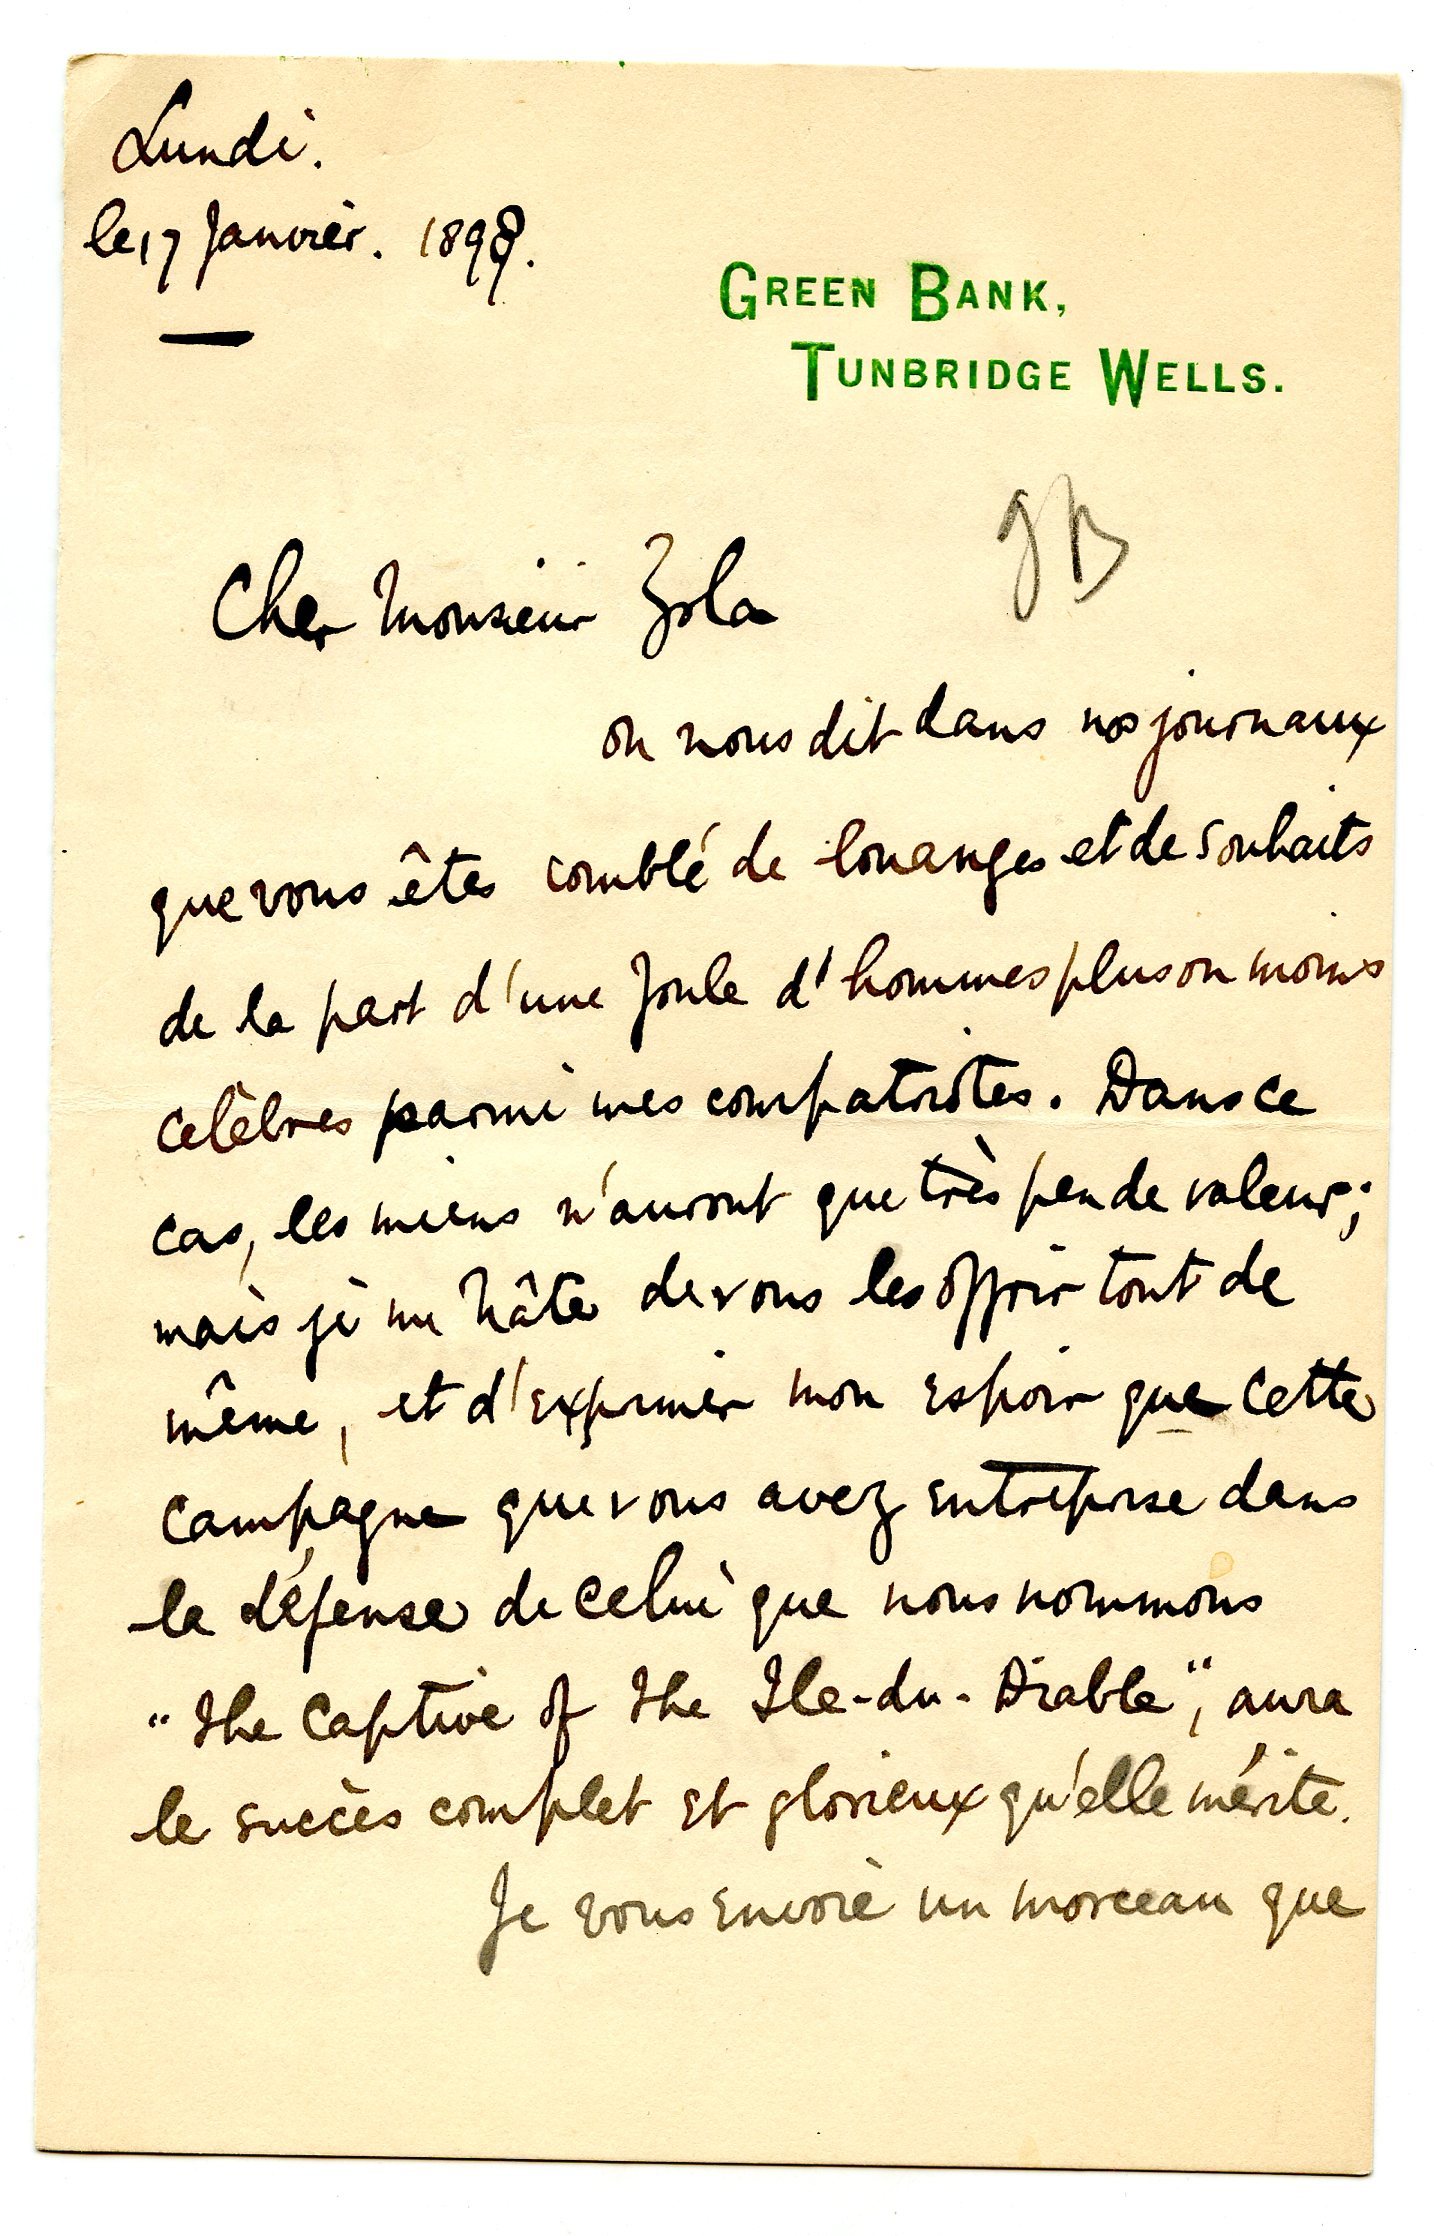 Lundi.
le 17 Janvier. 1898.
GREEN BANK,
TUNBRIDGE WELLS.
GB
Cher Monsieur Zola
on nous dit dans nos journaux
que vous êtes comblé de louanges et de souhaits
de la part d'une foule d'hommes plus ou moins
celèbres parmi mes compatriotes. Dans ce
cas, les miens n'auront que très peu de valeur;
mais je me hâte de vous les offrir tout de
même, et d'exprimer mon espoir que cette
campagne que vous avez entreprise dans
la défense de celui que nous nommons
"The Captive of the Ile-du-Diable", aura
le succès complet et glorieux qu'elle mérite.
Je vous envoie un morceau que